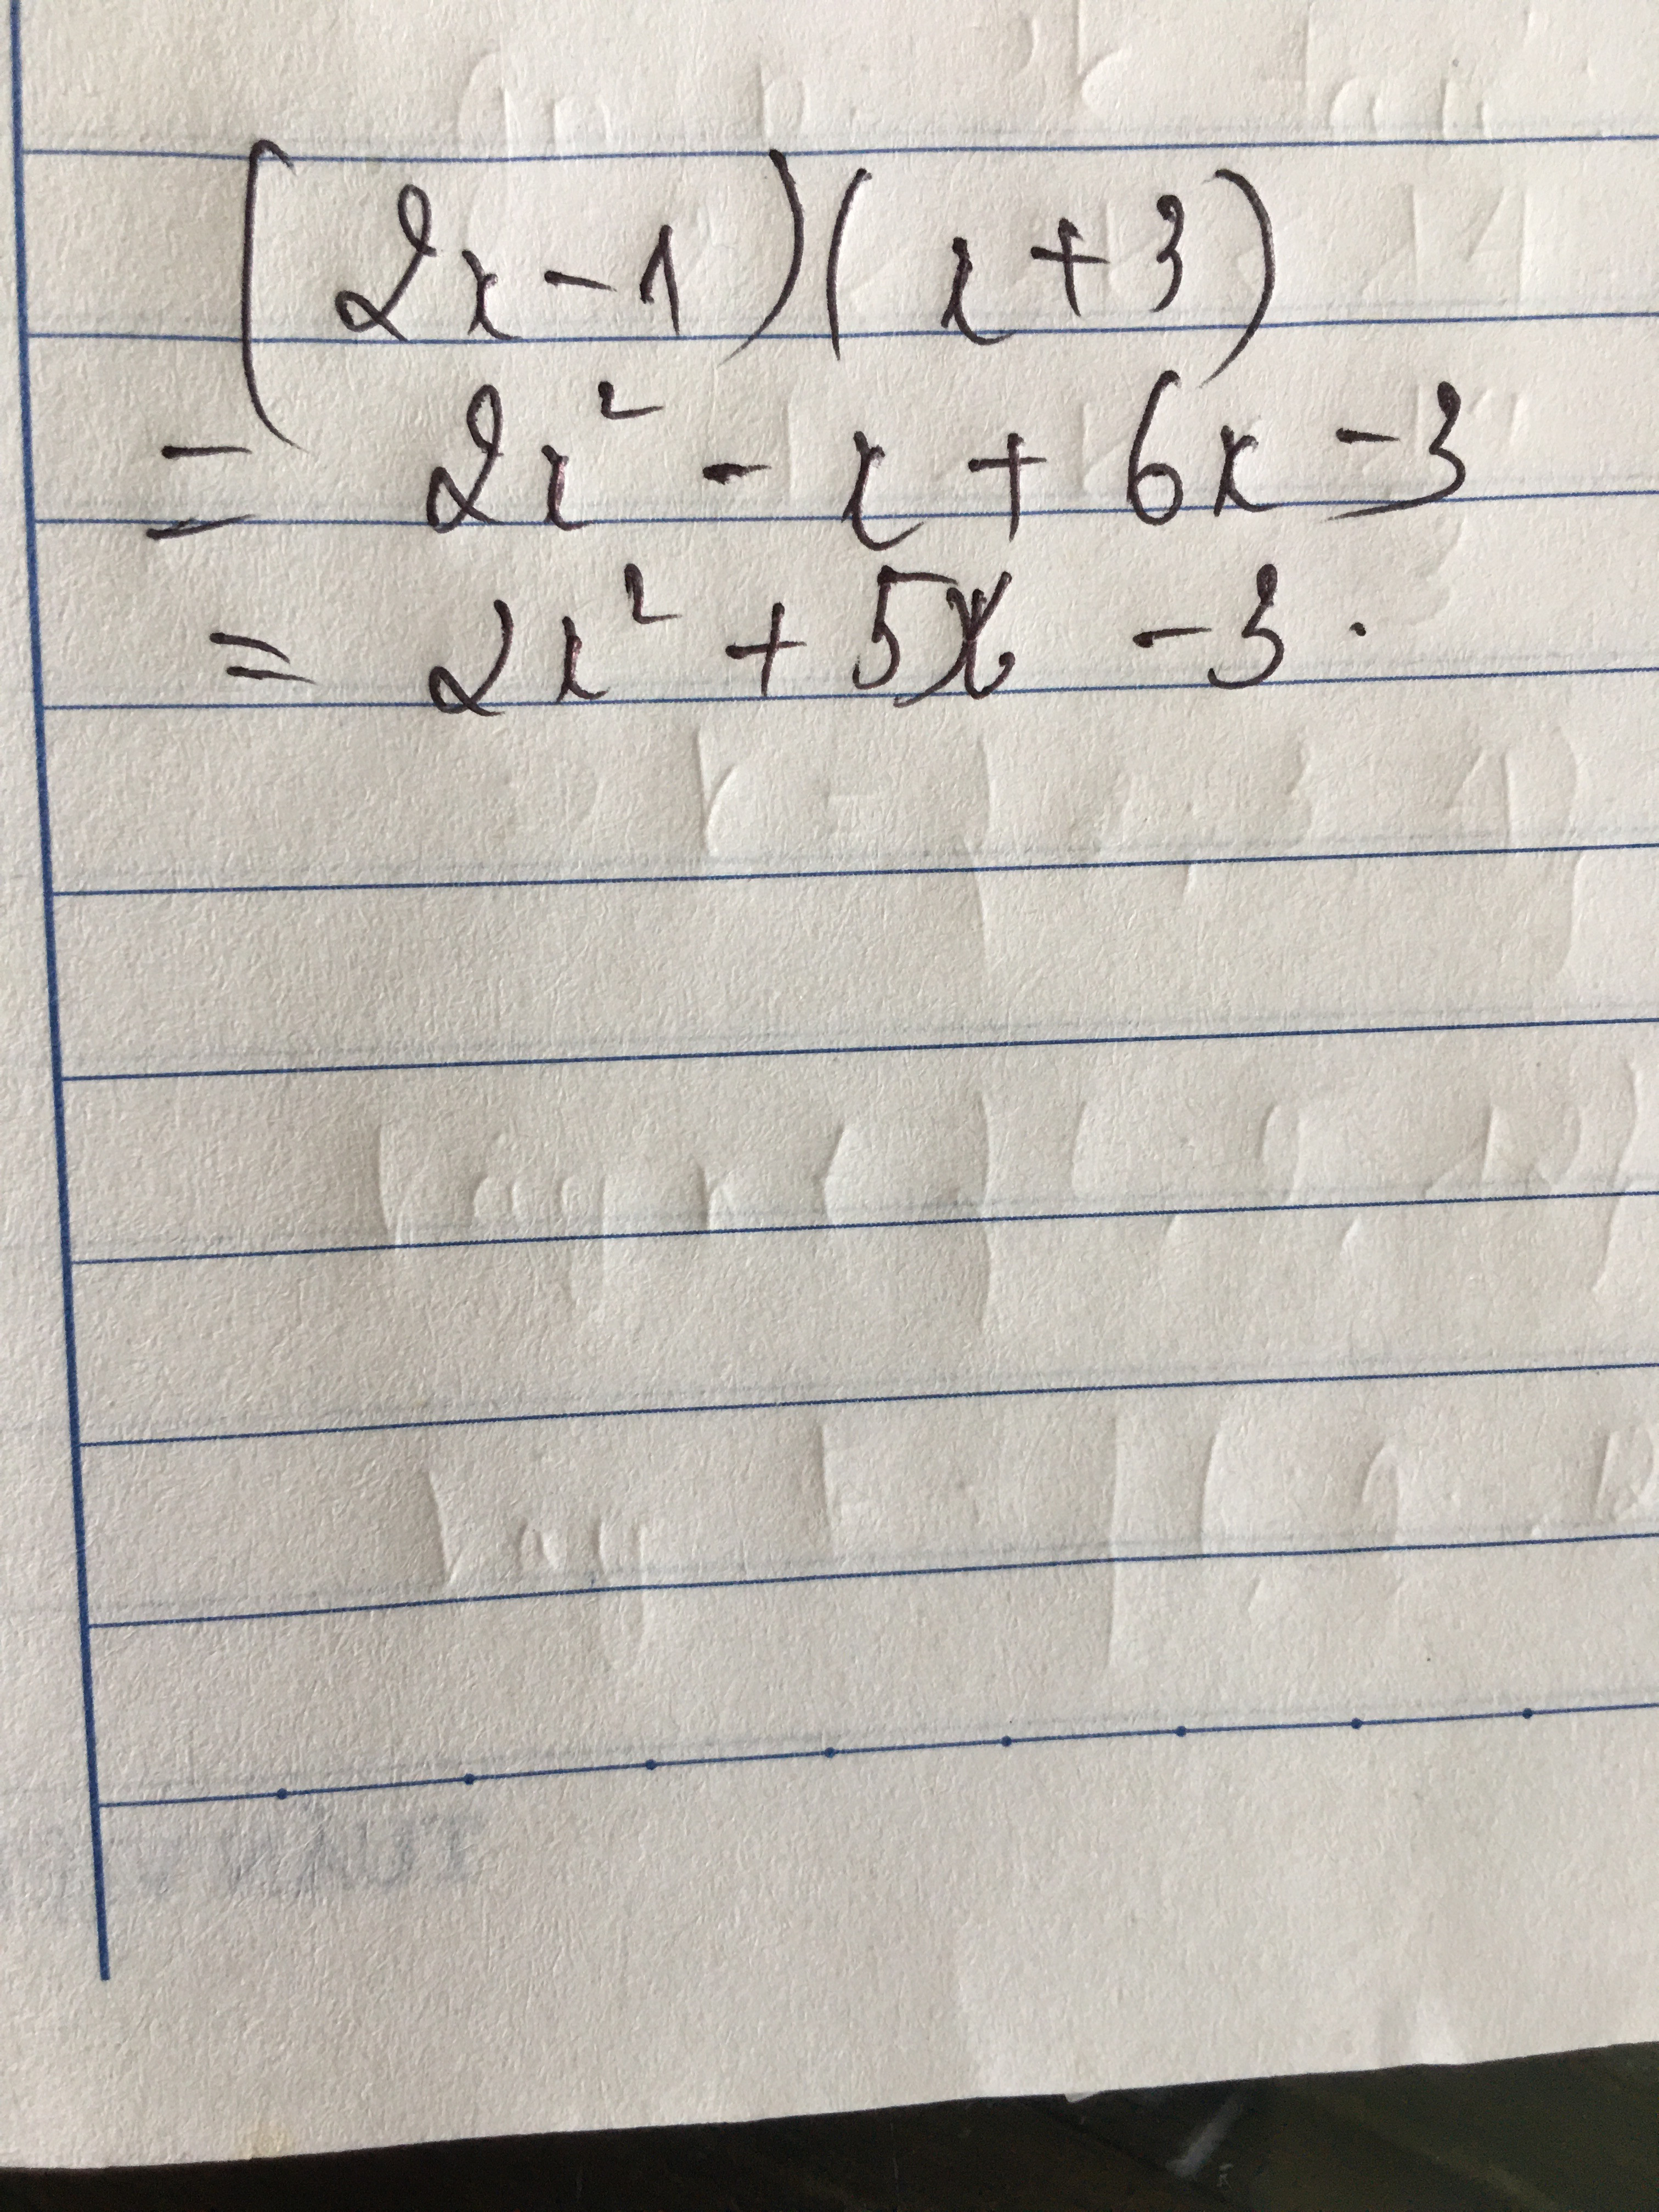 (2x-1)(x+3)
= 2x² - x + 6x - 3
= 2x² + 5x - 3.